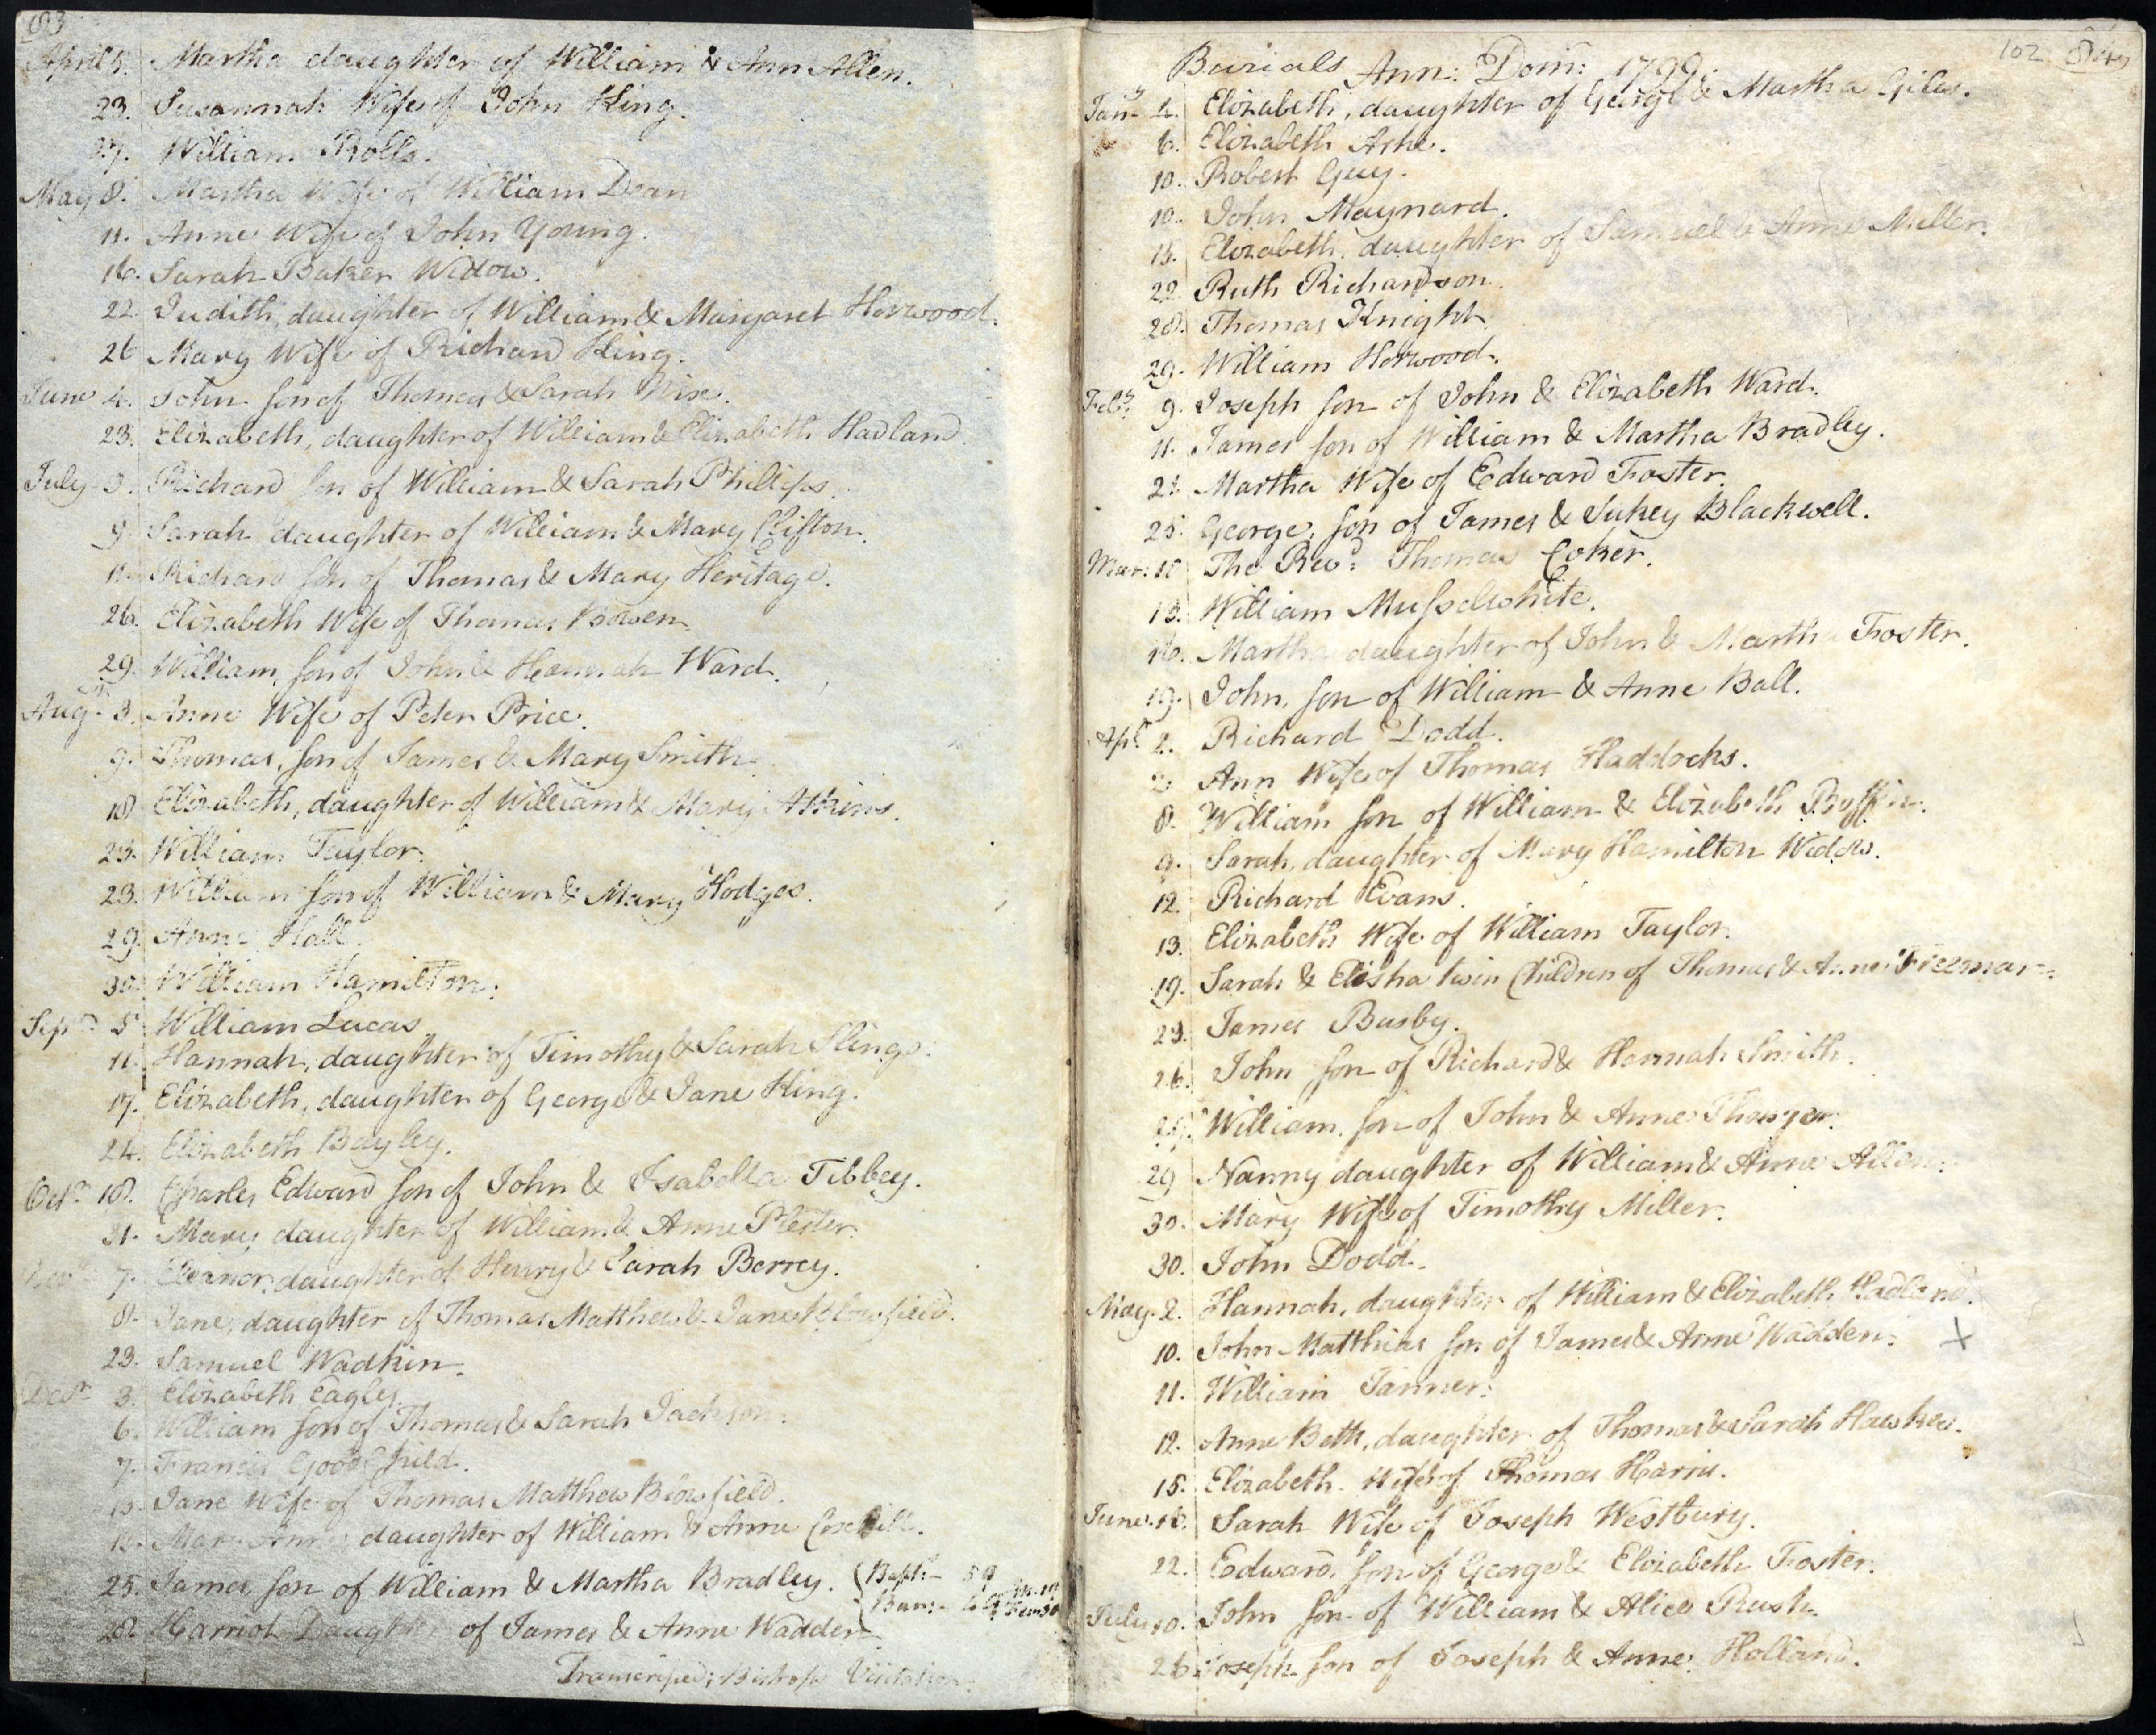 83
April 5. Martha daughter of William & Ann Allen.
23. Susannah Wife of John King.
27. William Rolls.
May 8. Martha Wife of William Dean
11. Anne Wife of John Young.
16. Sarah Baker Widow.
22. Judith, daughter of William & Margaret Horwood.
26 Mary Wife of Richard King.
June 4. John son of Thomas & Sarah Wise.
23. Elizabeth, daughter of William & Elizabeth Hadland.
July 3. Richard son of William & Sarah Phillips.
9. Sarah daughter of William & Mary Clifton.
11. Richard son of Thomas & Mary Heritage.
26. Elizabeth Wife of Thomas Bowen
29. William, son of John & Hannah Ward.
Augst 3. Anne Wife of Peter Price.
9. Thomas, son of James & Mary Smith.
18 Elizabeth, daughter of William & Mary Atkins.
23. William Taylor.
23. William son of William & Mary Hodges.
29. Anne Hall.
30. William Hamilton.
Sepr 5 William Lucas
11. Hannah, daughter of Timothy & Sarah Slings.
17. Elizabeth, daughter of George & Jane King.
24. Elizabeth Bayley.
Octr 18. Charles Edward son of John & Isabella Tibbey.
31. Mary daughter of William & Anne Plester.
Novr 7. Eleanor, daughter of Henry & Sarah Berrey.
8. Jane, daughter of Thomas Matthew & Jane Blowfield.
23. Samuel Wadkin.
Decr 3. Elizabeth Eagles.
6. William son of Thomas & Sarah Jackson.
7. Francis Good Child.
Jane Wife of Thomas Matthew Blowfield.
Mary Anne daughter of William & Anne
25. James son of William & Martha Bradley. (Bapt: 59
28. Harriot Daughter of James & Anne Wadden (Bur:
Transcriped; Bishops Visitation.
102 84
Burials Ann: Dom: 1799.
Jany 2. Elizabeth, daughter of George & Martha Giles.
6. Elizabeth Ashe.
10. Robert Guy.
10. John Maynard.
15. Elizabeth, daughter of Samuel & Anne Miller.
22. Ruth Richardson.
28. Thomas Knight
29. William Horwood.
Feby: 9. Joseph son of John & Elizabeth Ward.
11. James son of William & Martha Bradley.
21. Martha Wife of Edward Foster.
25. George, son of James & Sukey Blackwell.
Mar: 10 The Revd: Thomas Coker.
13. William Musselwhite.
16. Martha daughter of John & Martha Foster.
19. John, son of William & Anne Ball.
Apl 2. Richard Dodd.
2. Ann Wife of Thomas Haddocks.
8. William son of William & Elizabeth Buffin.
9. Sarah, daughter of Mary Hamilton Widow.
12. Richard Evans.
13. Elizabeth Wife of William Taylor.
19. Sarah & Elisha twin Children of Thomas & Anne Freeman.
23. James Busby.
26. John son of Richard & Hannah Smith.
William, son of John & Anne
29 Nanny daughter of William & Anne Allen.
30. Mary Wife of Timothy Miller.
30. John Dodd.
May. 2. Hannah, daughter of William & Elizabeth Hadland.
10. John Matthias son of James & Anne Wadden. X
11. William Tanner.
12. Anne Beth, daughter of Thomas & Sarah Hawkes.
15. Elizabeth Wife of Thomas Harris.
June. 18. Sarah Wife of Joseph Westbury.
22. Eadward, son of George & Elizabeth Foster.
July 10. John son of William & Alice Rush.
26 Joseph son of Joseph & Anne Holland.